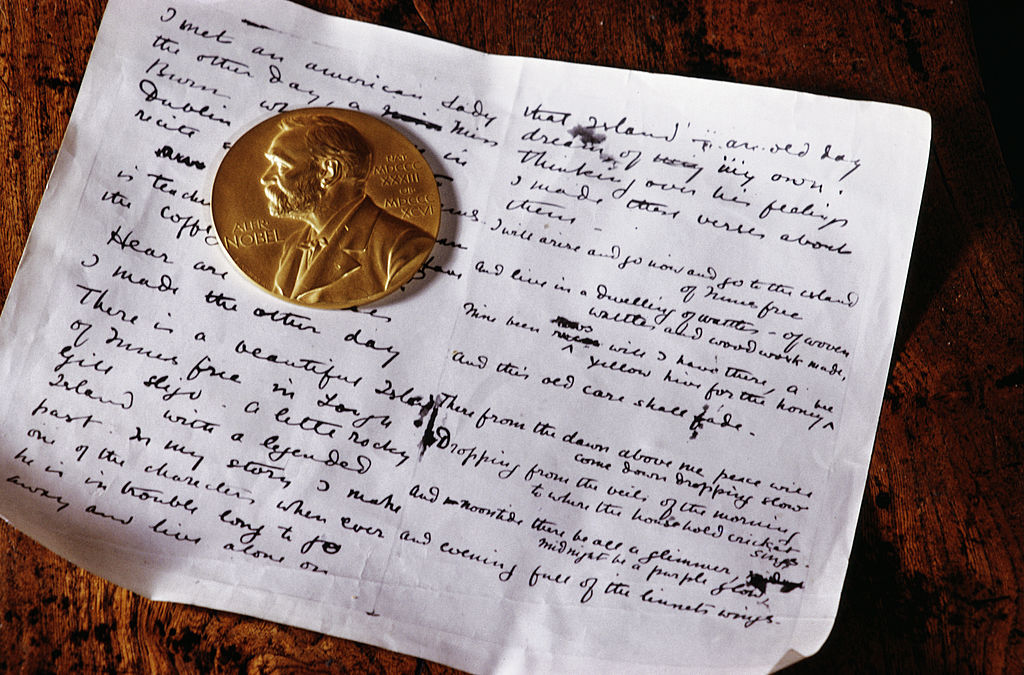 I met an american Lady
the other day, a Miss
Burn
Dublin in
recite
is teach
the coff
Hear are
I made the other day
There is a beautiful Island
of Innes free in Lough
Gill sligo. A little rocky
Island with a legended
past. In my story I make
one of the charecters when ever
he is in trouble long to go
away and live alone on
ALFR.
NOBEL
NAT.
MDCCC
XXXIII
OB.
MDCCC
XCVI
that Island — an old day
dream of my own.
Thinking over his feelings
I made these verses about
them —
I will arise and go now and go to the island
of Innis free
and live in a dwelling of wattles - of woven
wattles and wood work made,
Nine been rows will I have there, a
yellow hive for the honey
And this old care shall fade.
There from the dawn above me peace will
come down dropping slow
Dropping from the veils of the morning
to where the household cricket
sings.
And noontide there be all a glimmer,
midnight be a purple glow,
and evening full of the linnets wings.